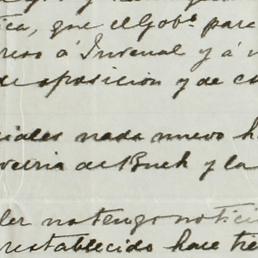 ica, que el Gobº pare
reso á Juvenal y á
de oposicion y de c
iales nada nuevo h
de Buch y la
ler no tengo notici
restablecido hace tie